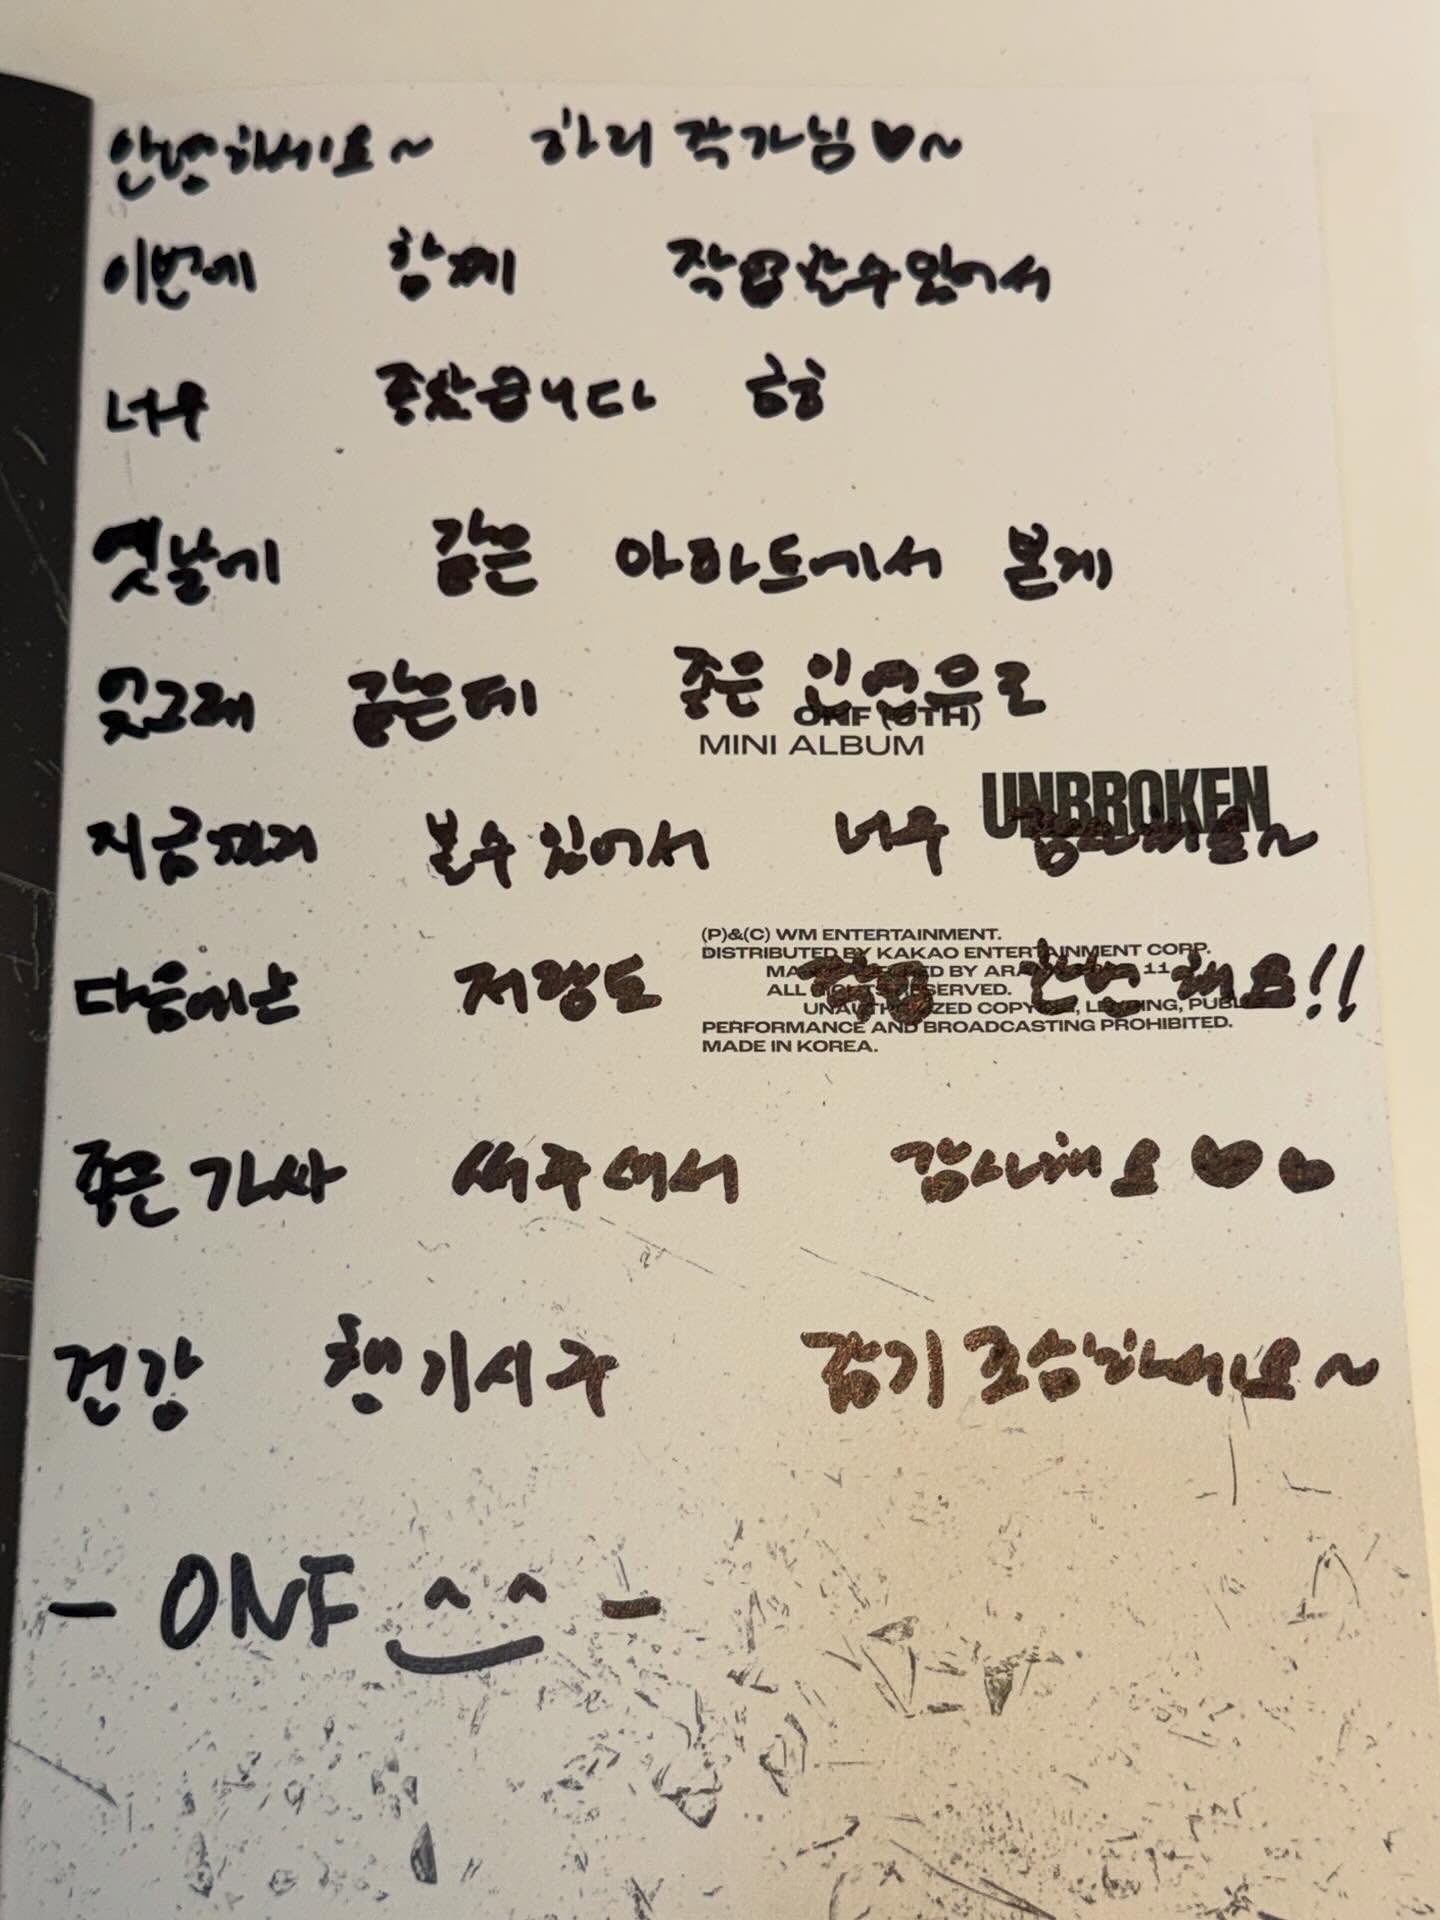 안녕하세요~ 하리 작가님♥~
이번에 함께 작업할수있어서
너무 좋았습니다 흐흐
옛날에 같은 아파트에서 본게
엊그래 같은데 좋은 인연으로
ONF (9TH)
MINI ALBUM
UNBROKEN
지금까지 볼수있어서 너무
(P)&(C) WM ENTERTAINMENT.
DISTRIBUTED BY KAKAO ENTERTAINMENT CORP.
다음에는 저랑도 한번 해요!!
ALL RIGHTS RESERVED.
UNAUTHORIZED COPYING, LENDING, PUBLIC
PERFORMANCE AND BROADCASTING PROHIBITED.
MADE IN KOREA.
좋은 가사 써주셔서 감사해요♥♥
건강 챙기시구 감기 조심하세요~
- ONF ^^ -